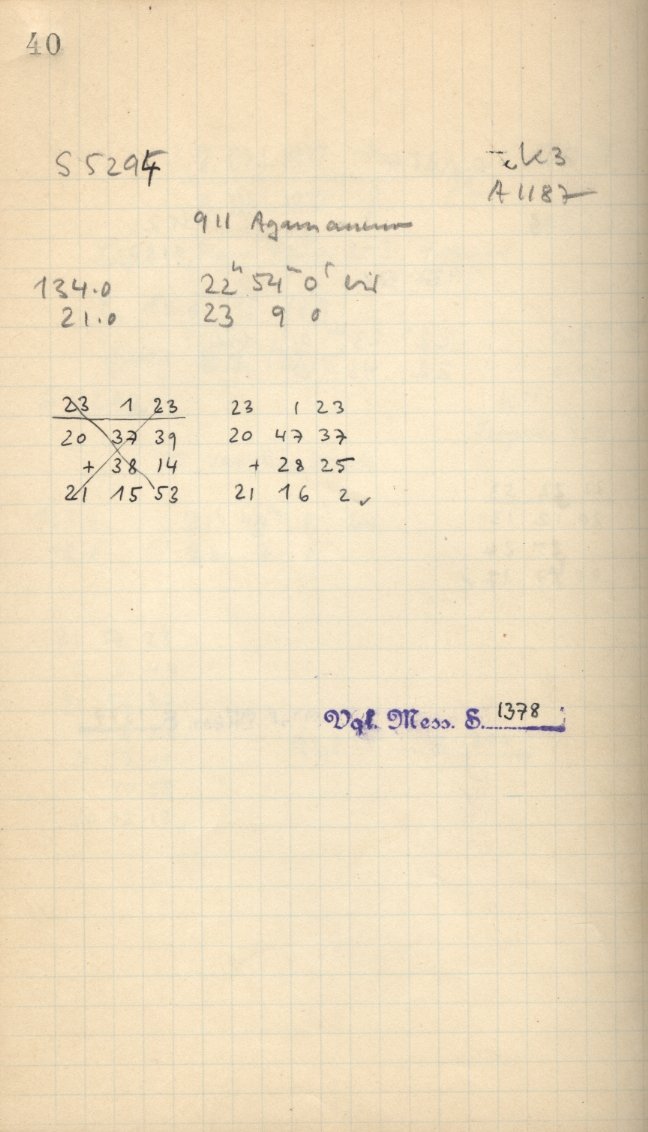 40
S 5294
K3
A 1187
911 Agamemnon
134.0 22h 54m 0s
21.0 23 9 0
23 1 23 23 1 23
20 37 39 20 47 37
+ 38 14 + 28 25
21 15 53 21 16 2 ✓
Vgl. Mess. S. 1378